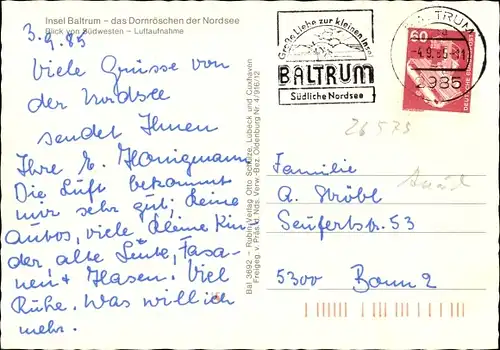 Insel Baltrum – das Dornröschen der Nordsee
Blick von Südwesten – Luftaufnahme
3.9.85
Viele Grüsse von
der Nordsee
sendet Ihnen
Ihre E. Honigmann
Die Luft bekommt
mir sehr gut; keine
Autos, viele kleine Kin
der, alte Leute, Fasa-
nen + Hasen. Viel
Ruhe. Was will ich
mehr.
Bal 3692 – Rubin-Verlag Otto Schulze, Lübeck und Cuxhaven
Freigeg. v. Präs. d. Nds. Verw.-Bez. Oldenburg Nr. 4/916/12
Große Liebe zur kleinen Insel
BALTRUM
Südliche Nordsee
BALTRUM
-4.9.85-11
2985
60
DEUTSCHE BUNDESPOST
26573
Familie
A. Ströbl
Seufertstr. 53
5300 Bonn 2